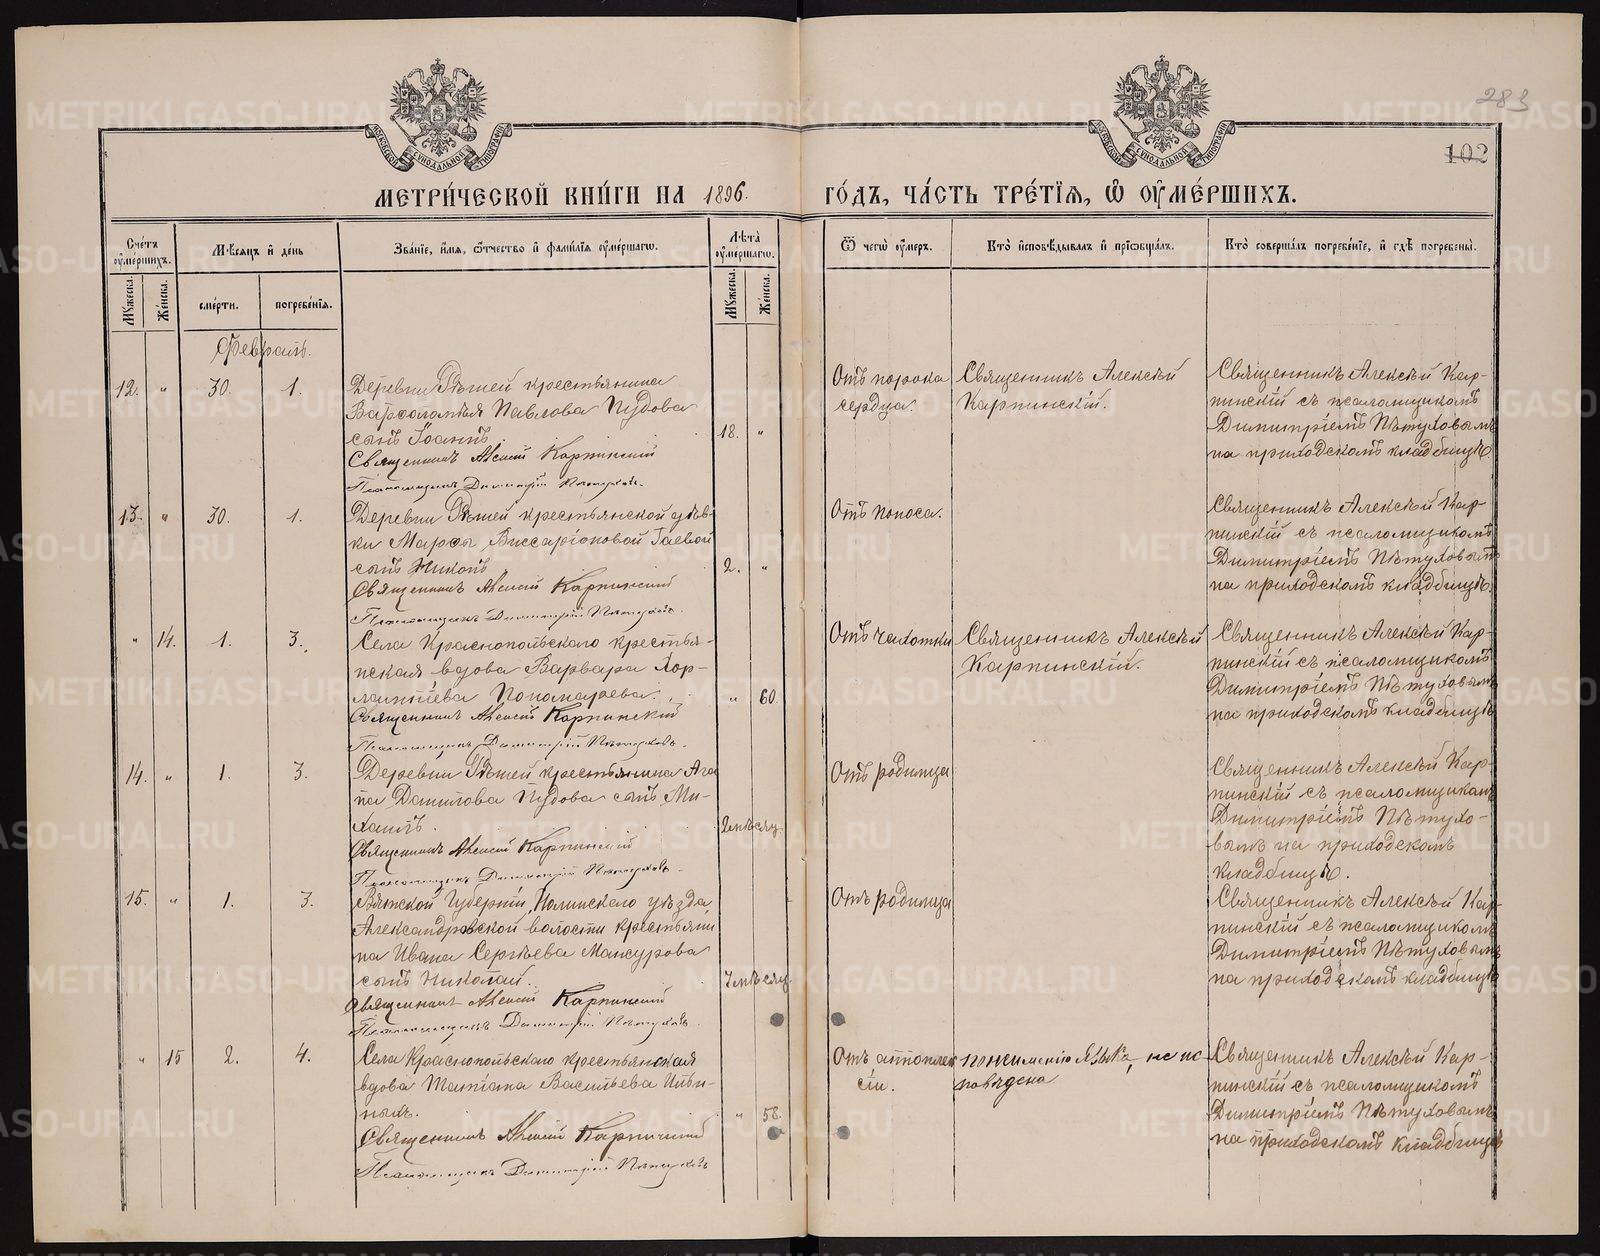 283
102
МЕТРИ́ЧЕСКОЙ КНИ́ГИ НА 1896.
ГО́ДЪ, ЧА́СТЬ ТРЕ́ТІѦ, Ѽ ОУ҆МЕ́РШИХЪ.
Сче́тъ оумершихъ.
Мѣсяцъ и де́нь
Зва́ніе, и́мя, ѻтчество и фами́лія оумершаго.
Лѣта̀ оумершаго.
Ѿ чегѡ̀ оумеръ.
Кто̀ исповѣдывалъ и пріѡбща́лъ.
Кто̀ соверша́лъ погребе́ніе, и гдѣ̀ погребены̀.
Мꙋжеска.
Же́нска.
сме́рти.
погребе́нія.
Мꙋжеска.
Же́нска.
Февраль.
12. " 30. 1.
Деревни Рѣшей крестьянина
Варѳоломѣя Павлова Пудова
сынъ Іоаннъ.
18. "
Священникъ Алексій Карпинскій
Псаломщикъ Димитрій Пѣтуховъ.
Отъ порока
сердца.
Священникъ Алексѣй
Карпинскій.
Священникъ Алексѣй Кар-
пинскій съ псаломщикомъ
Димитріемъ Пѣтуховымъ
на приходскомъ кладбищѣ.
13. " 30. 1.
Деревни Рѣшей крестьянской дѣв-
ки Марѳы Виссаріоновой Гаевой
сынъ Никонъ
2. "
Священникъ Алексій Карпинский
Псаломщикъ Димитрій Пѣтуховъ.
Отъ поноса.
Священникъ Алексѣй Кар
пинскій съ псаломщикомъ
Димитріемъ Пѣтуховымъ
на приходскомъ кладбищѣ.
" 14. 1. 3.
Села Краснопольскаго крестья-
нская вдова Варвара Хар-
лампіева Пономарева.
" 60.
Священникъ Алексій Карпинскій
Псаломщикъ Димитрій Пѣтуховъ.
Отъ чахотки
Священникъ Алексѣй
Карпинскій.
Священникъ Алексѣй Кар-
пинскій съ псаломщикомъ
Димитріемъ Пѣтуховымъ
на приходскомъ кладбищѣ
14. " 1. 3.
Деревни Рѣшей крестьянина Ага
па Данилова Пудова сынъ Ми-
хаилъ.
2 мѣсяц.
Священникъ Алексій Карпинский
Псаломщикъ Димитрій Пѣтуховъ.
Отъ родимца
Священникъ Алексѣй Кар-
пинскій съ псаломщикомъ
Димитріемъ Пѣтухо-
вымъ на приходскомъ
кладбищѣ.
15. " 1. 3.
Вятской губерніи, Нолинскаго уѣзда
Александровской волости крестьяни
на Ивана Сергѣева Мансурова
сынъ Николай.
7 мѣсяц.
Священникъ Алексій Карпинский
Псаломщикъ Димитрій Пѣтуховъ.
Отъ родимца
Священникъ Алексѣй Кар-
пинскій съ псаломщикомъ
Димитріемъ Пѣтуховымъ
на приходскомъ кладбищѣ
" 15 2. 4.
Села Краснопольскаго крестьянская
вдова Татіана Васильева
ныхъ.
" 58.
Священникъ Алексій Карпинский
Псаломщикъ Димитрій Пѣтуховъ
Отъ апоплек
сіи.
по неимѣнію языка, не ис
повѣдена
Священникъ Алексѣй Кар-
пинскій съ псаломщикомъ
Димитріемъ Пѣтуховымъ
на приходскомъ кладбищѣ